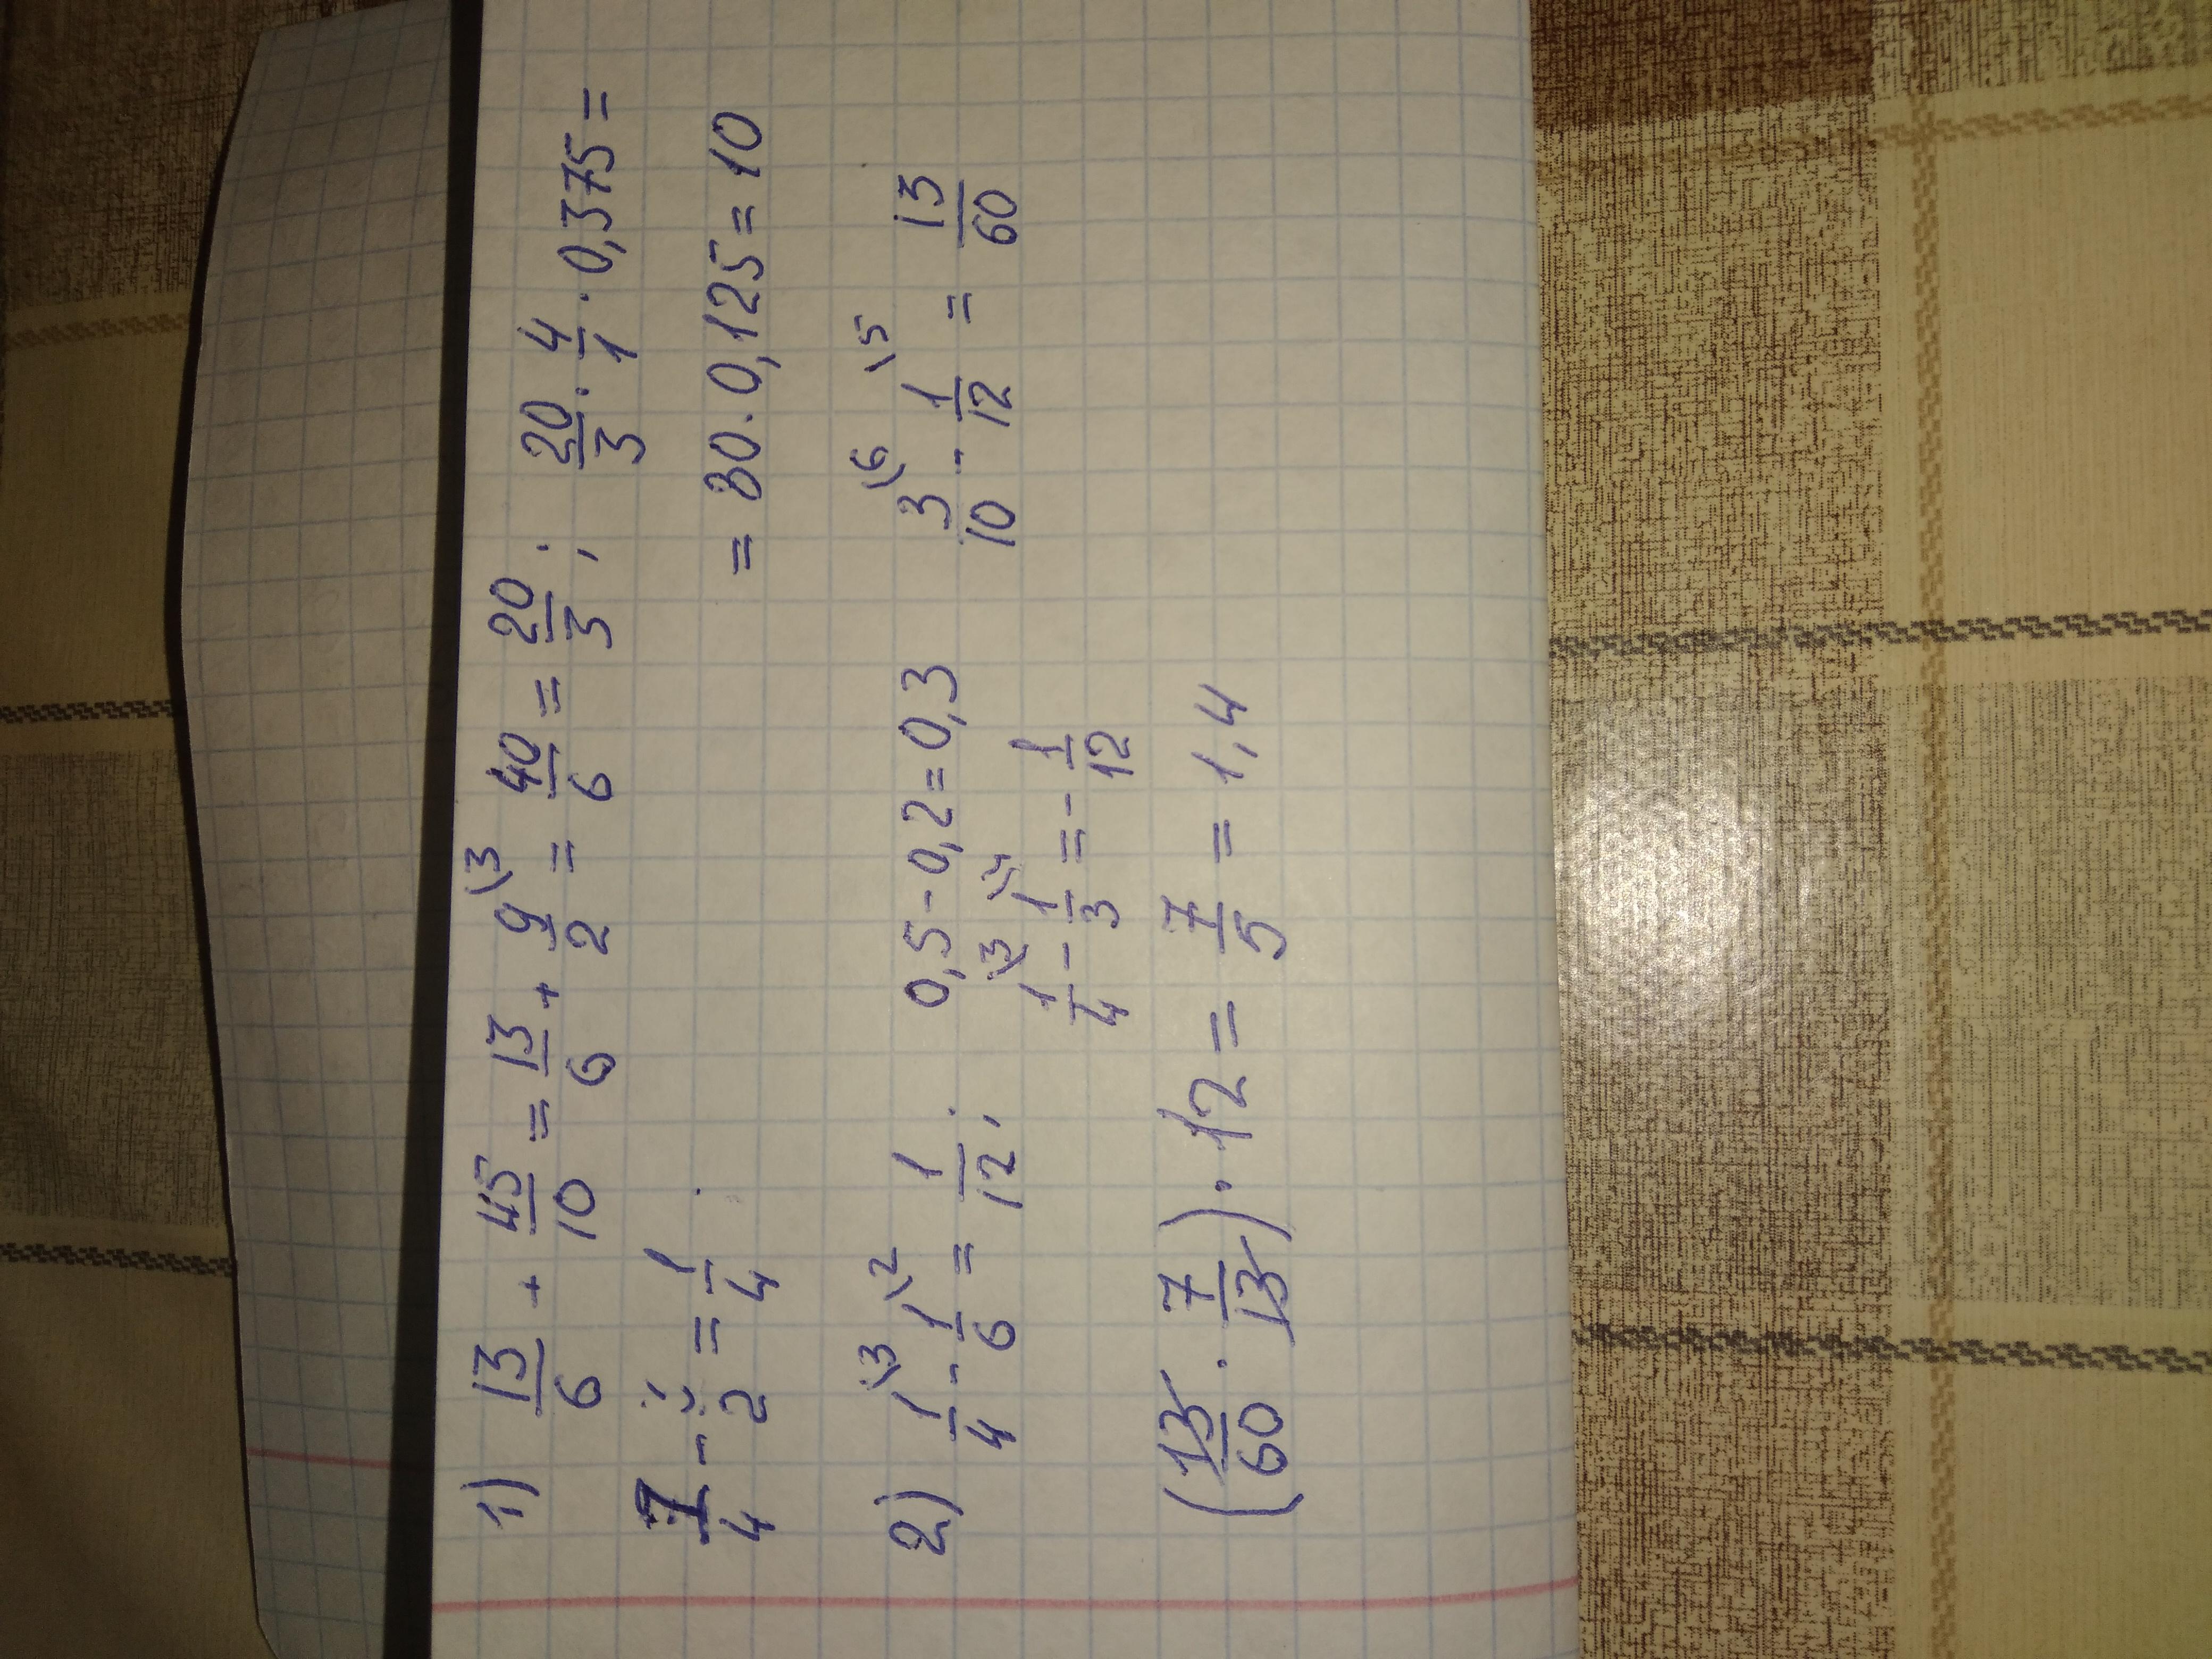 1) 13/6 + 45/10 = 13/6 + 9\3/2 = 40/6 = 20/3 ; 20/3 · 4/1 · 0,375 =
7/4 - 3/2 = 1/4 = 80 · 0,125 = 10
2) 1\3/4 - 1\2/6 = 1/12 ; 0,5 - 0,2 = 0,3 3\6/10 - 1\5/12 = 13/60
1\3/4 - 1\4/3 = - 1/12
(13/60 · 7/13) · 12 = 7/5 = 1,4